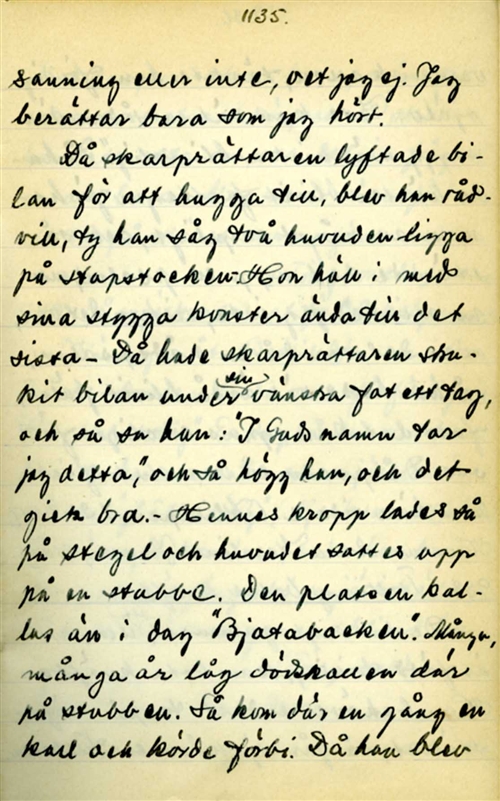 1135.
sanning eller inte, vet jag ej. Jag
berättar bara som jag hört.
Då skarprättaren lyftade bi-
lan för att hugga till, blev han råd-
vill, ty han såg två huvuden ligga
på stapstocken. Hon höll i med
sina stygga konster ända till det
sista – Då hade skarprättaren stru-
kit bilan under sin vänstra fot ett tag,
och så sa han: "I Guds namn tar
jag detta", och så högg han, och det
gick bra. – Hennes kropp lades så
på stegel och huvudet sattes upp
på en stubbe. Den platsen kal-
las än i dag "Bjatabacken". Många,
många år låg dödskallen där
på stubben. Så kom där en gång en
karl och körde förbi. Då han blev